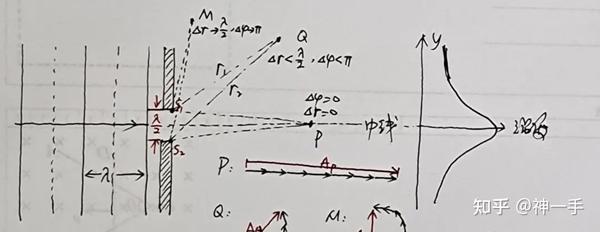 M
Δr→λ/2, Δφ→π
Q
Δr<λ/2, Δφ<π
r₁
r₂
y
S₁
λ/2
S₂
Δφ=0
Δr=0
P
中线
λ
P:
Aₚ
Q:
M:
知乎 @神一手